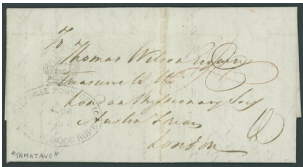 To
Thomas Wilson Esquire
Treasurer to the
London Missionary Socy
Austin Friars
London
"TAMATAVE"